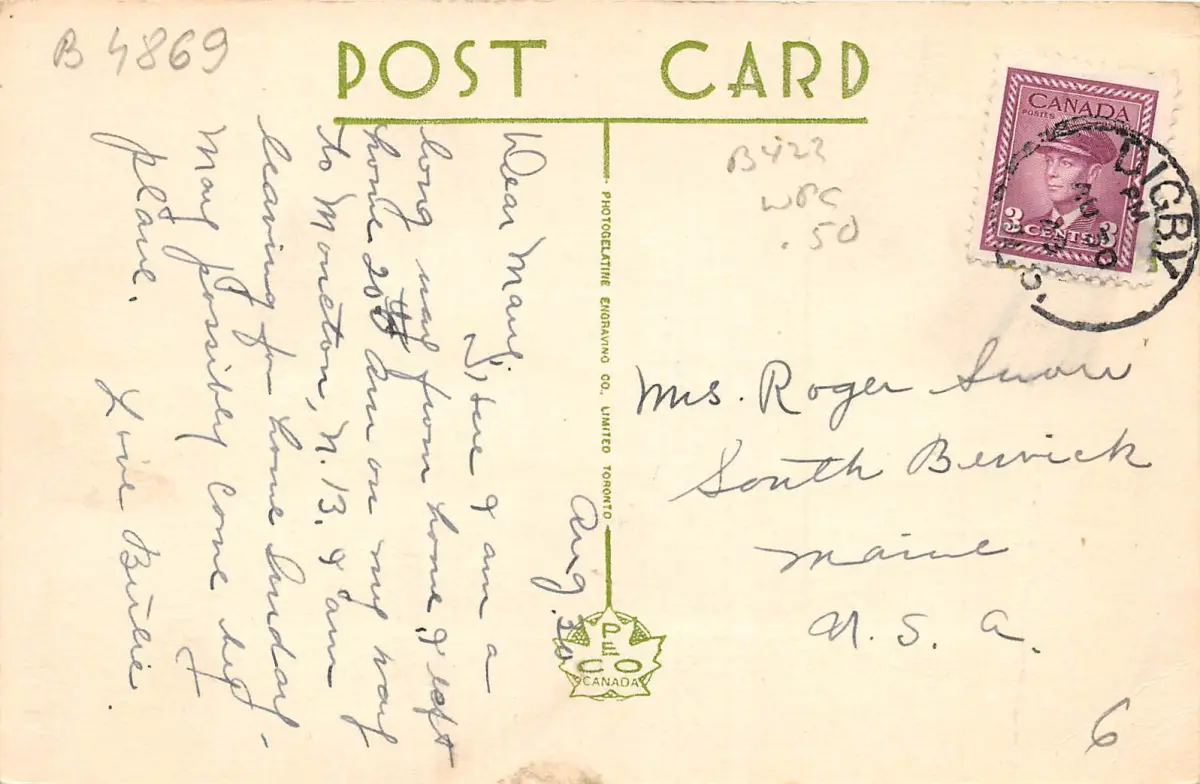 B 4869
POST CARD
CANADA
POSTES POSTAGE
3 CENTS 3
DIGBY
PM
AU 30
N.S.
B422
WPC
.50
PHOTOGELATINE ENGRAVING CO. LIMITED TORONTO
PECO
CANADA
Aug. 30
Dear Mary,
Here I am a
long way from home, I left
home 20th am on my way
to Moncton, N.B. I am
leaving for home Sunday -
May possibly come by
plane.
Love
Mrs. Roger Snow
South Berwick
Maine
U. S. A.
6